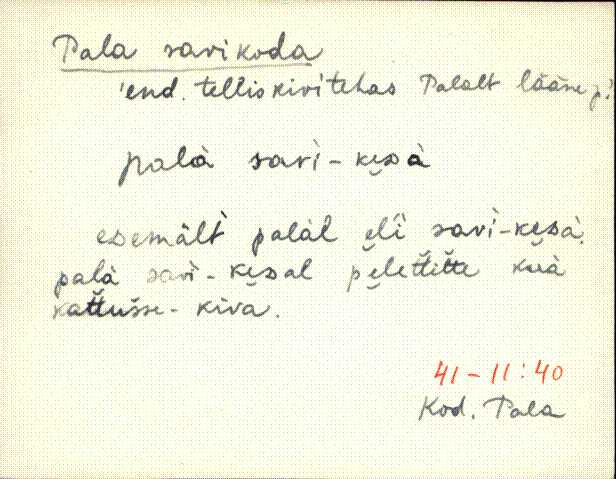 Pala savikoda
'end. telliskivitehas Palalt lääne p.'
palà savì-kẹdà
esemält palàl ẹlì savì-kẹdà.
palà savì-kẹdal pẹlettitte kuà
kattusse-kiva.
41-11:40
Kod. Pala